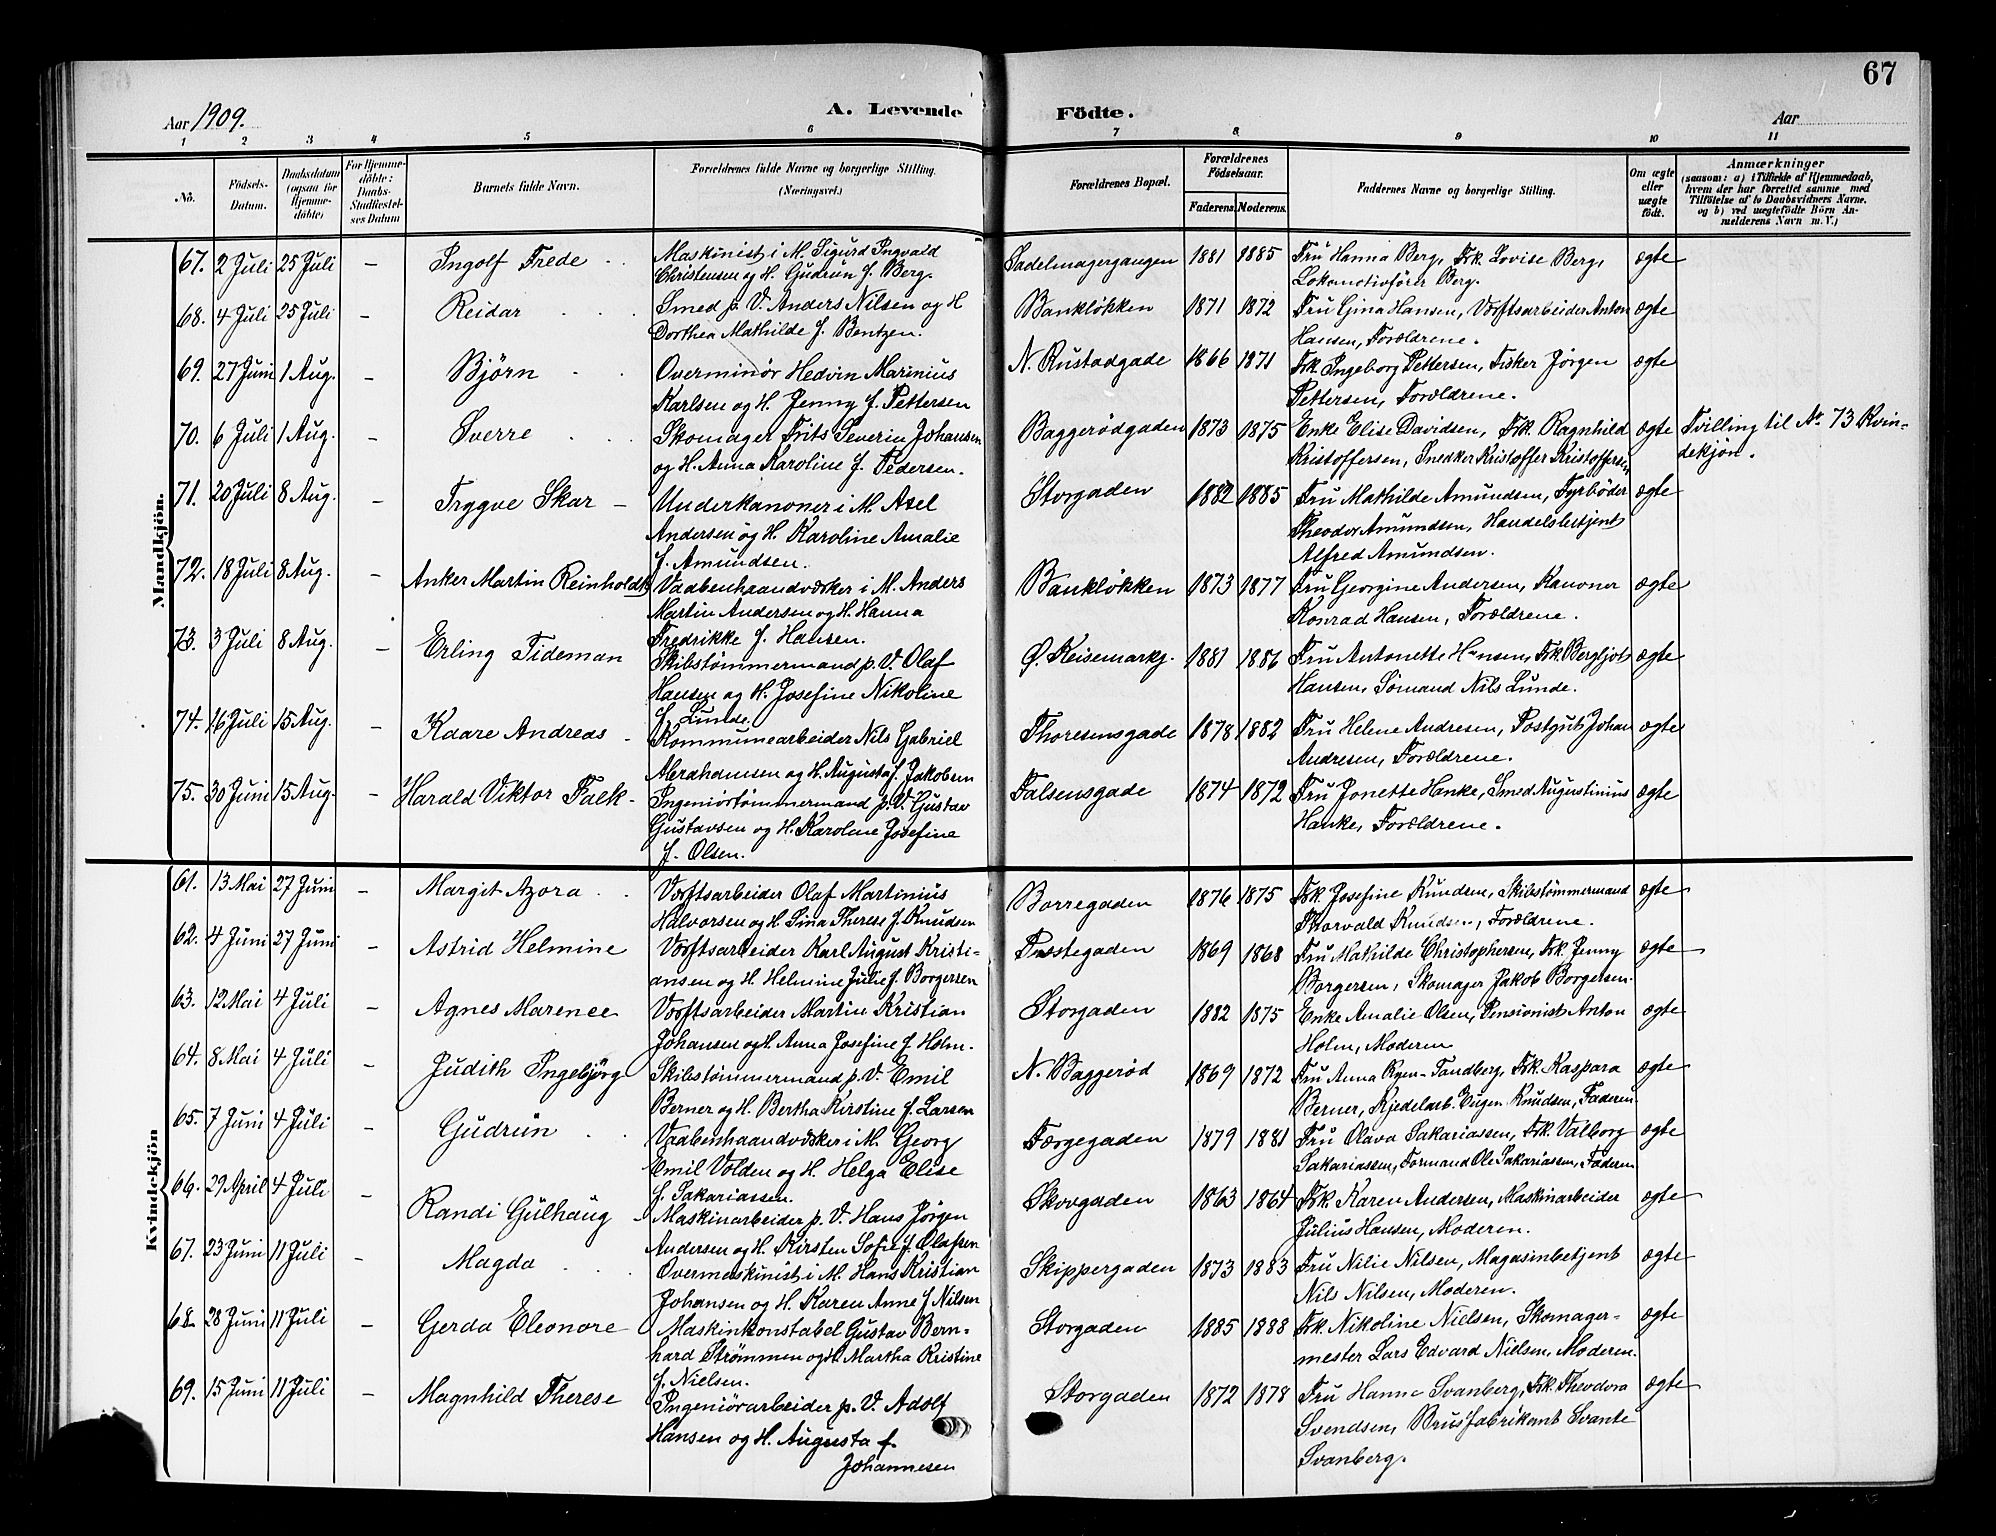 67
Aar 1909.
A. Levende Födte.
Aar
1 2 3 4 5 6 7 8 9 10 11
No.
Födsels-Datum.
Daabsdatum (ogsaa for Hjemme-döbte)
For Hjemme-döbte: Daabs-Stadfæstelses Datum
Barnets fulde Navn.
Forældrenes fulde Navne og borgerlige Stilling. (Næringsvei.)
Forældrenes Bopæl.
Forældrenes Födselsaar.
Faderens. Moderens.
Faddernes Navne og borgerlige Stilling.
Om ægte eller uægte födt.
Anmærkninger
(saasom: a) i Tilfælde af Hjemmedaab, hvem der har forrettet samme med Tilföielse af to Daabsvidners Navne. og b) ved uægtefödte Börn Anmelderens Navn m. V.)
Mandkjön.
67. 2 Juli 25 Juli – Ingolf Frede Maskinist i M. Sigurd Ingvald Christensen og H. Gudrun f. Berg. Sadelmagergangen 1881 1885 Fru Hanna Berg, Frk. Lovise Berg, Lokomotivfører Berg. ægte
68. 4 Juli 25 Juli – Reidar Smed p. V. Anders Nilsen og H Dorthea Mathilde f. Bentzen. Bankløkken 1871 1872 Fru Gina Hansen, Værftsarbeider Anton Hansen, Forældrene. ægte
69. 27 Juni 1 Aug. – Björn Overminør Hedvin Marinius Karlsen og H. Jenny f. Pettersen N. Rustadgade 1866 1871 Frk. Ingeborg Pettersen, Fisker Jørgen Pettersen, Forældrene. ægte
70. 6 Juli 1 Aug. – Sverre Skomager Frits Severin Johansen og H. Anna Karoline f. Pedersen. Baggerödgaden 1873 1875 Enke Elise Davidsen, Frk. Ragnhild Kristoffersen, Snedker Kristoffer Kristoffersen ægte Tvilling til No 73 Kvindekjön.
71. 20 Juli 8 Aug. – Tryggve Skar – Underkanoner i M. Axel Andersen og H. Karoline Amalie f. Amundsen. Storgaden 1882 1885 Fru Mathilde Amundsen, Fyrbøder Theodor Amundsen, Handelsbetjent Alfred Amundsen. ægte
72. 18 Juli 8 Aug. – Anker Martin Reinholdt Vaabenhaandværker i M. Anders Martin Andersen og H. Hanna Fredrikke f. Hansen. Bankløkken 1873 1877 Fru Georgine Andersen, Kanoner Konrad Hansen, Forældrene. ægte
73. 3 Juli 8 Aug. – Erling Tideman Skibstømmermand p. V. Olaf Hansen og H. Josefine Nikoline f. Lunde. Ø. Keisemarkj. 1881 1886 Fru Antonette Hansen, Frk. Bergljot Hansen, Sømand Nils Lunde. ægte
74. 16 Juli 15 Aug. – Kaare Andreas – Kommunearbeider Nils Gabriel Abrahamsen og H. Augusta f. Jakobsen Thoresensgade 1878 1882 Fru Helene Andresen, Postgut Johan Andresen, Forældrene. ægte
75. 30 Juni 15 Aug. – Harald Viktor Falk – Ingeniørtømmermand p. V. Gustav Gustavsen og H. Karoline Josefine f. Olsen. Falsensgade 1874 1872 Fru Jonette Hanke, Smed Augustinius Hanke, Forældrene. ægte
Kvindekjön
61. 13 Mai 27 Juni – Margit Azora Værftsarbeider Olaf Martinius Halvorsen og H. Lina Therese f. Knudsen Borregaden 1876 1875 Frk. Josefine Knudsen, Skibstømmermand Thorvald Knudsen, Forældrene. ægte
62. 4 Juni 27 Juni – Astrid Helmine Værftsarbeider Karl August Kristiansen og H. Helmine Julie f. Borgersen Præstegaden 1869 1868 Fru Mathilde Christophersen, Frk. Jenny Borgersen, Skomager Jakob Borgersen. ægte
63. 12 Mai 4 Juli – Agnes Marence Værftsarbeider Martin Kristian Johansen og H. Anna Josefine f. Holm. Storgaden 1882 1875 Enke Amalie Olsen, Pensionist Anton Holm, Moderen ægte
64. 8 Mai 4 Juli – Judith Ingebjörg Skibstømmermand p. V. Emil Berner og H. Bertha Kirstine f. Larsen N. Baggeröd 1869 1872 Fru Anna Ryen-Tandberg, Frk. Kaspara Berner, Kjedelarb. Eugen Knudsen, Faderen ægte
65. 7 Juni 4 Juli – Gudrun Vaabenhaandværker i M. Georg Emil Volden og H. Helga Elise f. Sakariassen. Færgegaden 1879 1881 Fru Olava Sakariassen, Frk. Valborg Sakariassen, Formand Ole Sakariassen, Faderen ægte
66. 29 April 4 Juli – Randi Gulhaug Maskinarbeider p. V. Hans Jørgen Andersen og H. Kirsten Sofie f. Olafsen Skovgaden 1863 1864 Frk. Karen Andersen, Maskinarbeider Julius Hansen, Moderen. ægte
67. 23 Juni 11 Juli – Magda Overmaskinist i M. Hans Kristian Johansen og H. Karen Anne f. Nilsen Skippergaden 1873 1883 Fru Nilie Nilsen, Magasinbetjent Nils Nilsen, Moderen. ægte
68. 28 Juni 11 Juli – Gerda Eleonore Maskinkonstabel Gustav Bernhard Strømmen og H. Martha Kristine f. Nielsen. Storgaden 1885 1888 Frk. Nikoline Nielsen, Skomagermester Lars Edvard Nielsen, Moderen. ægte
69. 15 Juni 11 Juli – Magnhild Therese Ingeniørarbeider p. V. Adolf Hansen og H. Augusta f. Johannesen Storgaden 1872 1878 Fru Hanna Svanberg, Frk. Theodora Svendsen, Brusfabrikant Svante Svanberg. ægte